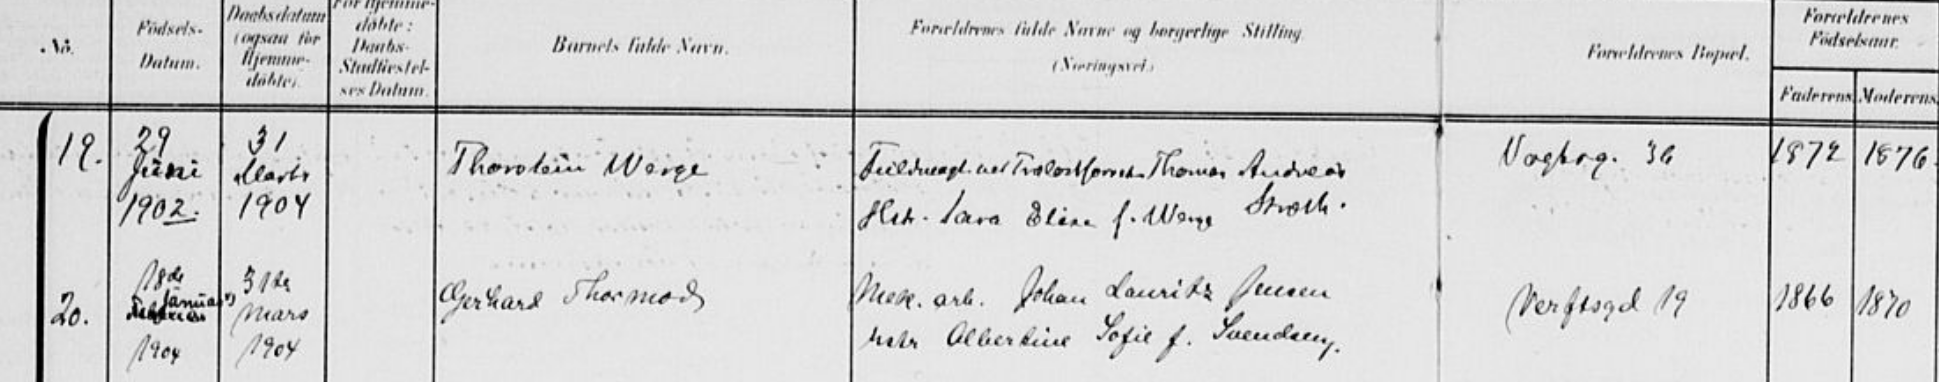 No.
Födsels-
Datum.
Daabsdatum
(ogsaa for
Hjemme-
döbte).
For Hjemme-
döbte:
Daabs-
Stadfæstel-
ses Datum.
Barnets fulde Navn.
Forældrenes fulde Navne og borgerlige Stilling.
(Næringsvei.)
Forældrenes Bopæl.
Forældrenes
Födselsaar.
Faderens.
Moderens.
19.
29
Juni
1902.
31
Marts
1904
Thorstein Werge
Thomas Andreas
Hstr. Lava Elise f. Werge
36
1872
1876.
20.
18de
Januar
1904
31te
Mars
1904
Gerhard Thormod
Mek. arb. Johan Lauritz Jensen
hstr Albertine Sofie f. Svendsen.
Verftsgd 19
1866
1870